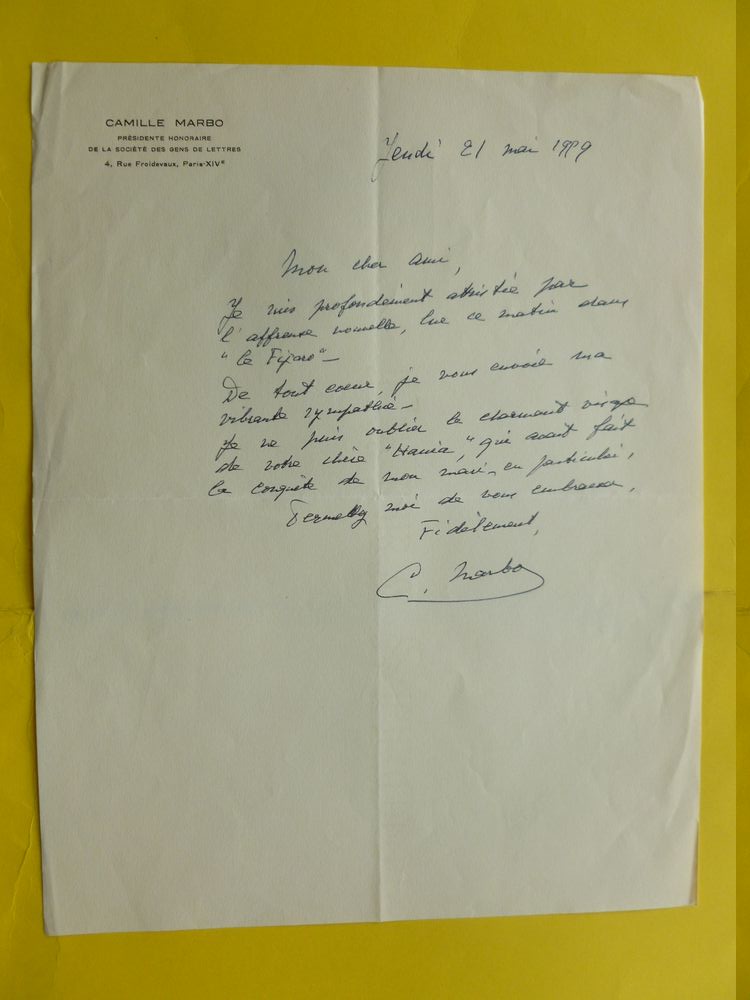 CAMILLE MARBO
PRÉSIDENTE HONORAIRE
DE LA SOCIÉTÉ DES GENS DE LETTRES
4, Rue Froidevaux, Paris-XIVe
Jeudi 21 mai
Mon cher Ami,
Je suis profondément attristée par
l'affreuse nouvelle, lue ce matin dans
"le Figaro" –
De tout coeur, je vous envoie ma
vibrante sympathie –
Je ne puis oublier le charmant visage
de votre chère "Hania," qui avait fait
la conquête de mon mari, en particulier,
Permettez moi de vous embrasser,
Fidèlement,
C. Marbo